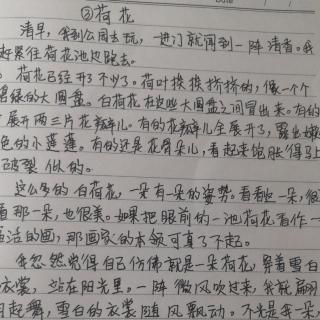 ②荷花
清早，我到公园去玩，一进门就闻到一阵清香。我
赶紧往荷花池边跑去。
荷花已经开了不少了。荷叶挨挨挤挤的，像一个个
碧绿的大圆盘。白荷花在这些大圆盘之间冒出来。有的
才展开两三片花瓣儿。有的花瓣儿全展开了，露出嫩黄
色的小莲蓬。有的还是花骨朵儿，看起来饱胀得马上
破裂似的。
这么多的白荷花，一朵有一朵的姿势。看看这一朵，很
看那一朵，也很美。如果把眼前的一池荷花看作一
活的画，那画家的本领可真了不起。
我忽然觉得自己仿佛就是一朵荷花，穿着雪白
衣裳，站在阳光里。一阵微风吹过来，我就翩
起舞，雪白的衣裳随风飘动。不光是我一朵，